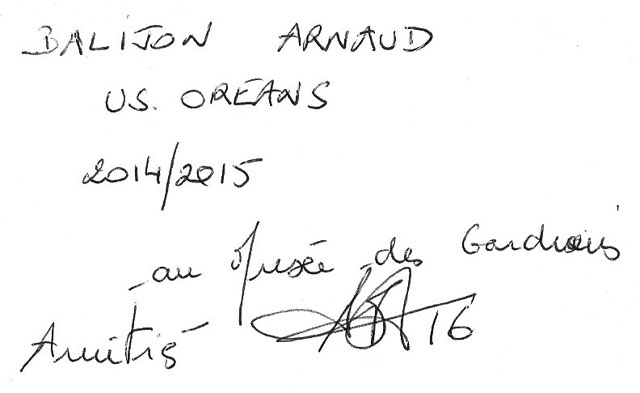 BALIJON ARNAUD
US. ORÉANS
2014/2015
au Musée des Gardiens
Amitié 16